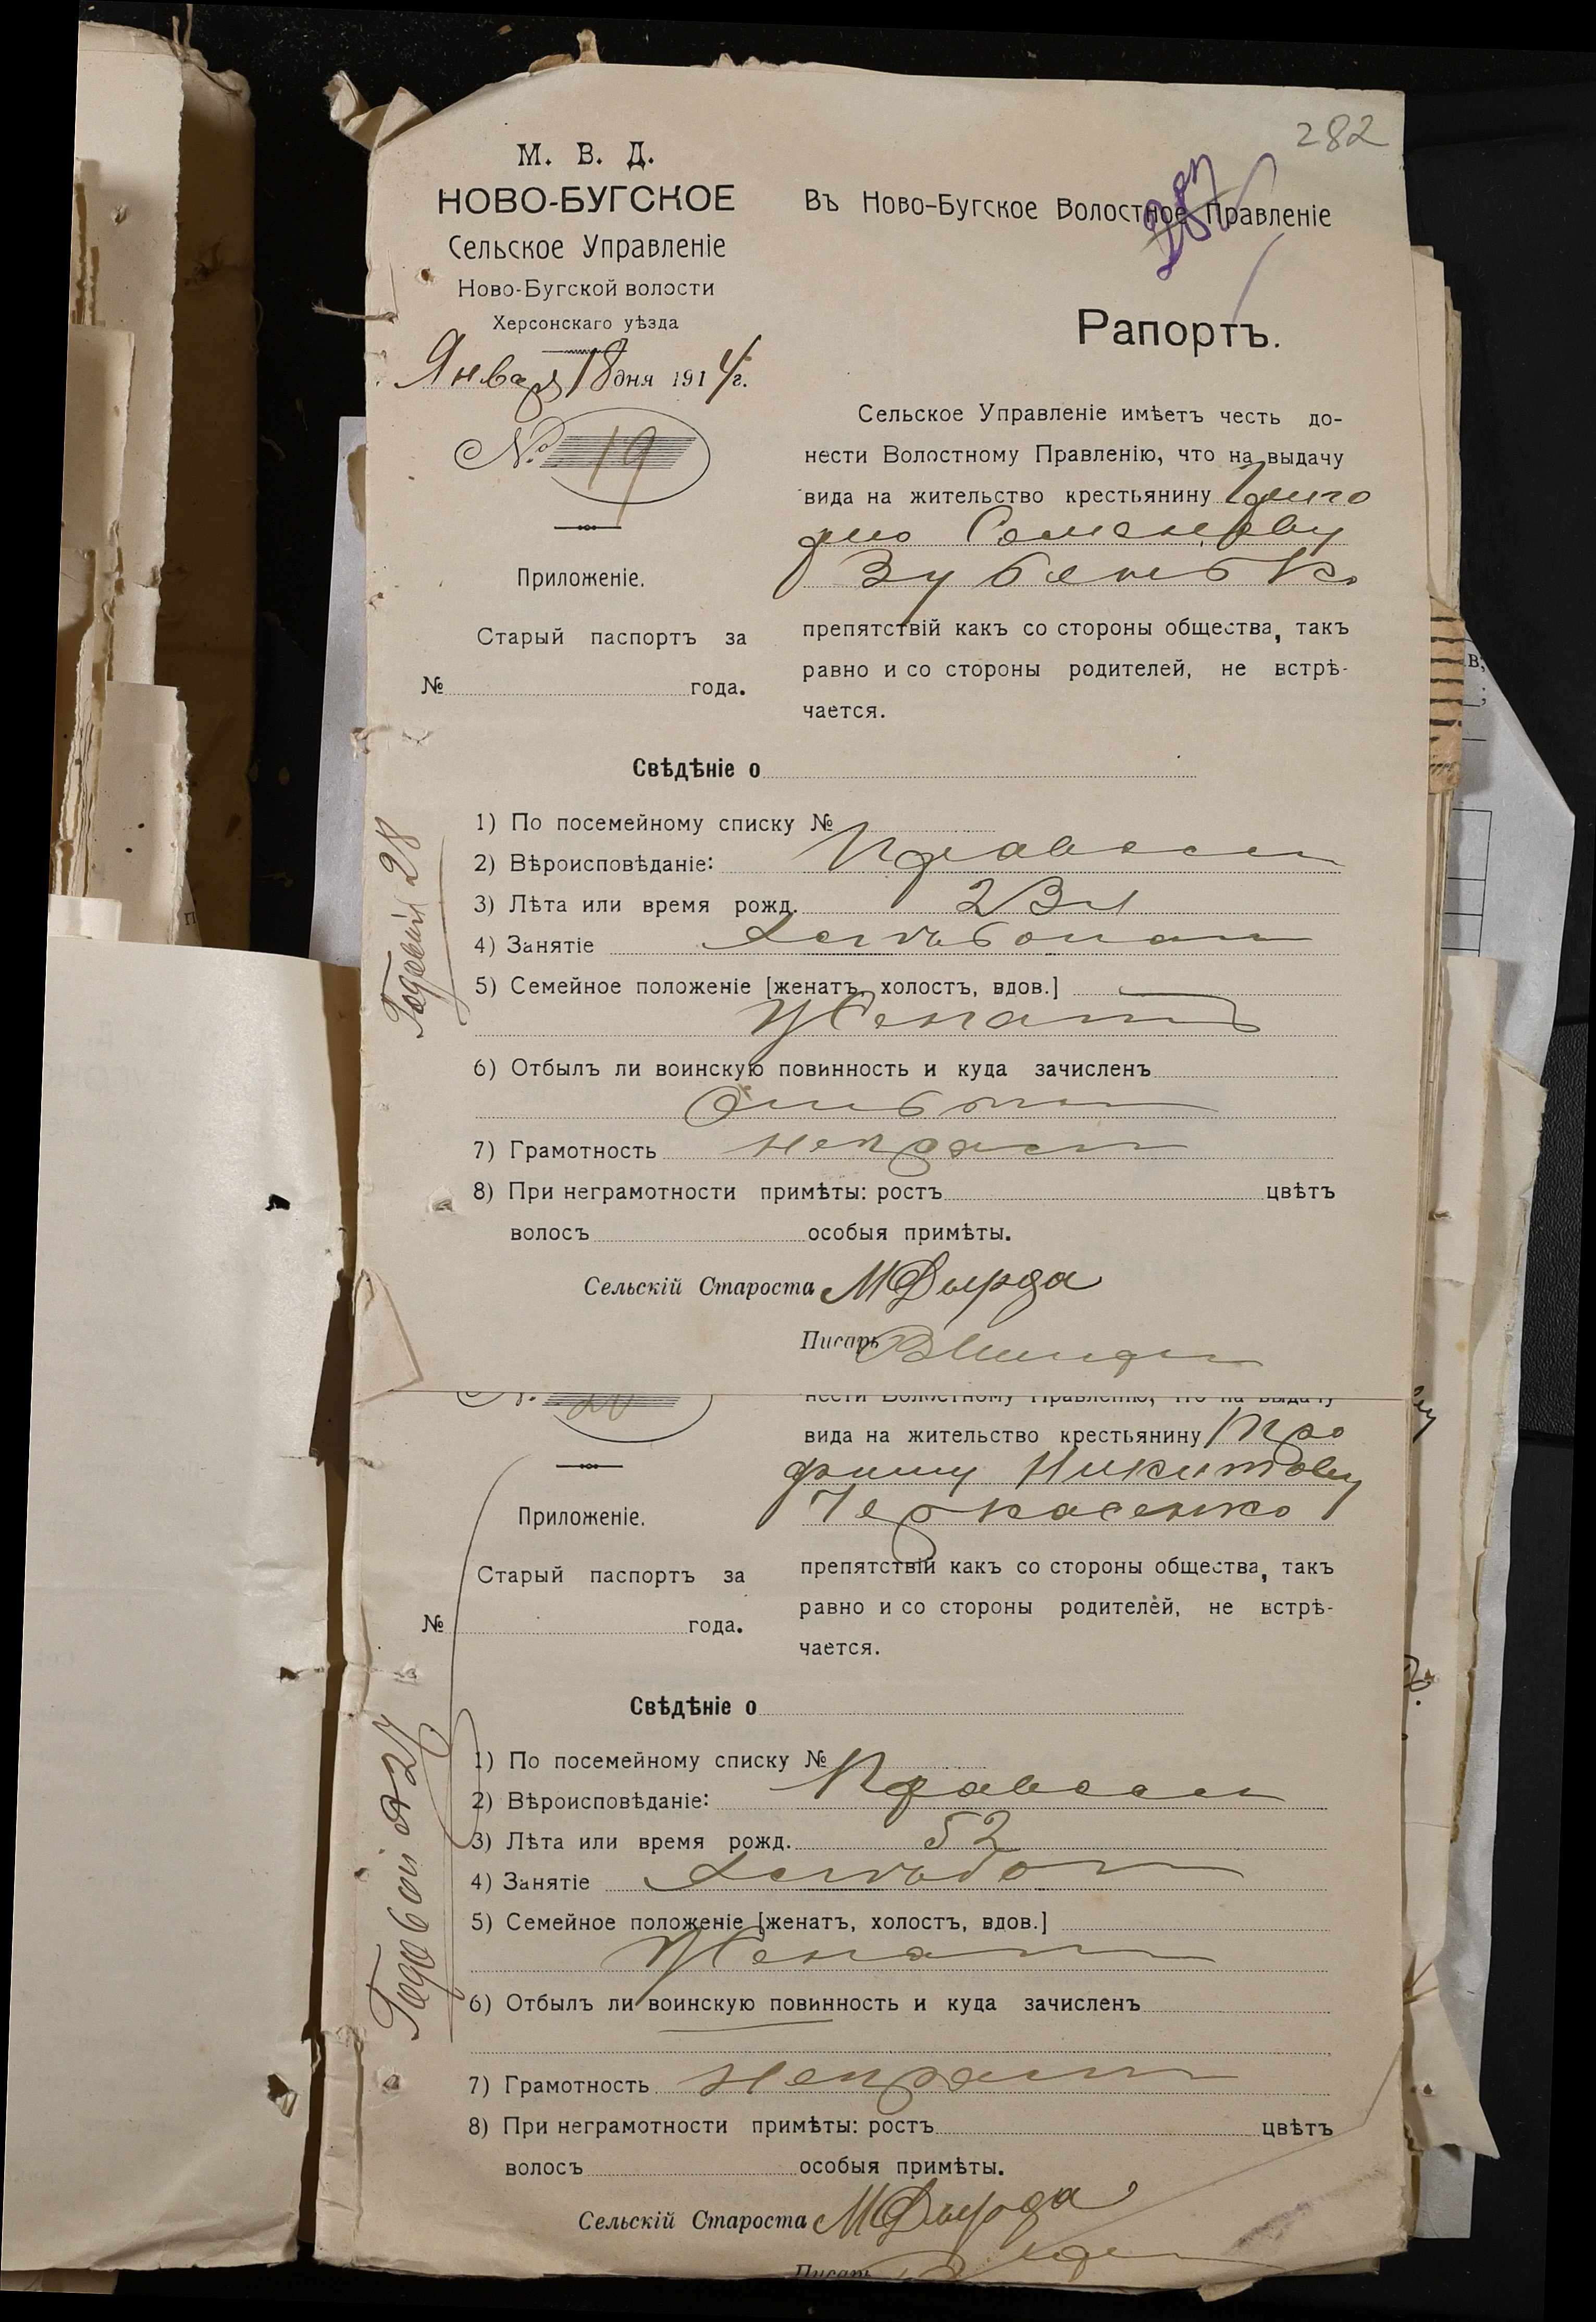 282
М. В. Д.
НОВО-БУГСКОЕ
Сельское Управленіе
Ново-Бугской волости
Херсонскаго уѣзда
Января 18 дня 1914 г.
№ 19
Приложеніе.
Старый паспортъ за
№ года.
Въ Ново-Бугское Волостное Правленіе
Рапортъ.
Сельское Управленіе имѣетъ честь до-
нести Волостному Правленію, что на выдачу
вида на жительство крестьянину Григо
рію Семенову
Зубенько
препятствій какъ со стороны общества, такъ
равно и со стороны родителей, не встрѣ-
чается.
Годовой 28
Свѣдѣніе о
1) По посемейному списку №
2) Вѣроисповѣданіе: Правосл
3) Лѣта или время рожд. 23 л
4) Занятіе Хлѣбопаш
5) Семейное положеніе [женатъ, холостъ, вдов.]
Женатъ
6) Отбылъ ли воинскую повинность и куда зачисленъ
7) Грамотность неграм
8) При неграмотности примѣты: ростъ цвѣтъ
волосъ особыя примѣты.
Сельскій Староста МДырда
Писарь
№ 20
нести Волостному Правленію, что на выдачу
вида на жительство крестьянину Тро
фиму Никитову
Черкасенко
Приложеніе.
Старый паспортъ за
№ года.
препятствій какъ со стороны общества, такъ
равно и со стороны родителей, не встрѣ-
чается.
Годовой 27
Свѣдѣніе о
1) По посемейному списку №
2) Вѣроисповѣданіе: Правосл
3) Лѣта или время рожд. 52
4) Занятіе Хлѣбоп
5) Семейное положеніе [женатъ, холостъ, вдов.]
Женат
6) Отбылъ ли воинскую повинность и куда зачисленъ
7) Грамотность неграм
8) При неграмотности примѣты: ростъ цвѣтъ
волосъ особыя примѣты.
Сельскій Староста МДырда
Писарь